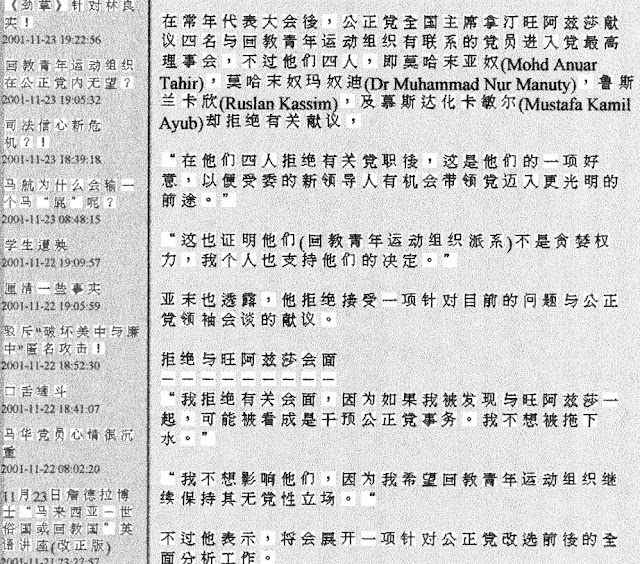 《劲草》针对林良
实！
2001-11-23 19:22:56
回教青年运动组织
在公正党内无望？
2001-11-23 19:05:32
司法信心新危
机？！
2001-11-23 18:39:18
马航为什么会输一
个马“屁”呢？
2001-11-23 08:48:15
学生遭殃
2001-11-22 19:09:57
厘清一些事实
2001-11-22 19:05:59
驳斥“破坏美中与廉
中”匿名攻击！
2001-11-22 18:52:30
口舌缠斗
2001-11-22 18:41:07
马华党员心情很沉
重
2001-11-22 08:02:20
11月23日詹德拉博
士“马来西亚－世
俗国或回教国”英
语讲座(改正版)
2001-11-21 23:22:57
在常年代表大会後，公正党全国主席拿汀旺阿兹莎献
议四名与回教青年运动组织有联系的党员进入党最高
理事会，不过他们四人，即莫哈末亚奴(Mohd Anuar
Tahir)，莫哈末奴玛奴迪(Dr Muhammad Nur Manuty)，鲁斯
兰卡欣(Ruslan Kassim)，及慕斯达化卡敏尔(Mustafa Kamil
Ayub)却拒绝有关献议，
“在他们四人拒绝有关党职後，这是他们的一项好
意，以便受委的新领导人有机会带领党迈入更光明的
前途。”
“这也证明他们(回教青年运动组织派系)不是贪婪权
力，我个人也支持他们的决定。”
亚末也透露，他拒绝接受一项针对目前的问题与公正
党领袖会谈的献议。
拒绝与旺阿兹莎会面
－－－－－－－－－
“我拒绝有关会面，因为如果我被发现与旺阿兹莎一
起，可能被看成是干预公正党事务。我不想被拖下
水。”
“我不想影响他们，因为我希望回教青年运动组织继
续保持其无党性立场。“
不过他表示，将会展开一项针对公正党改选前後的全
面分析工作。